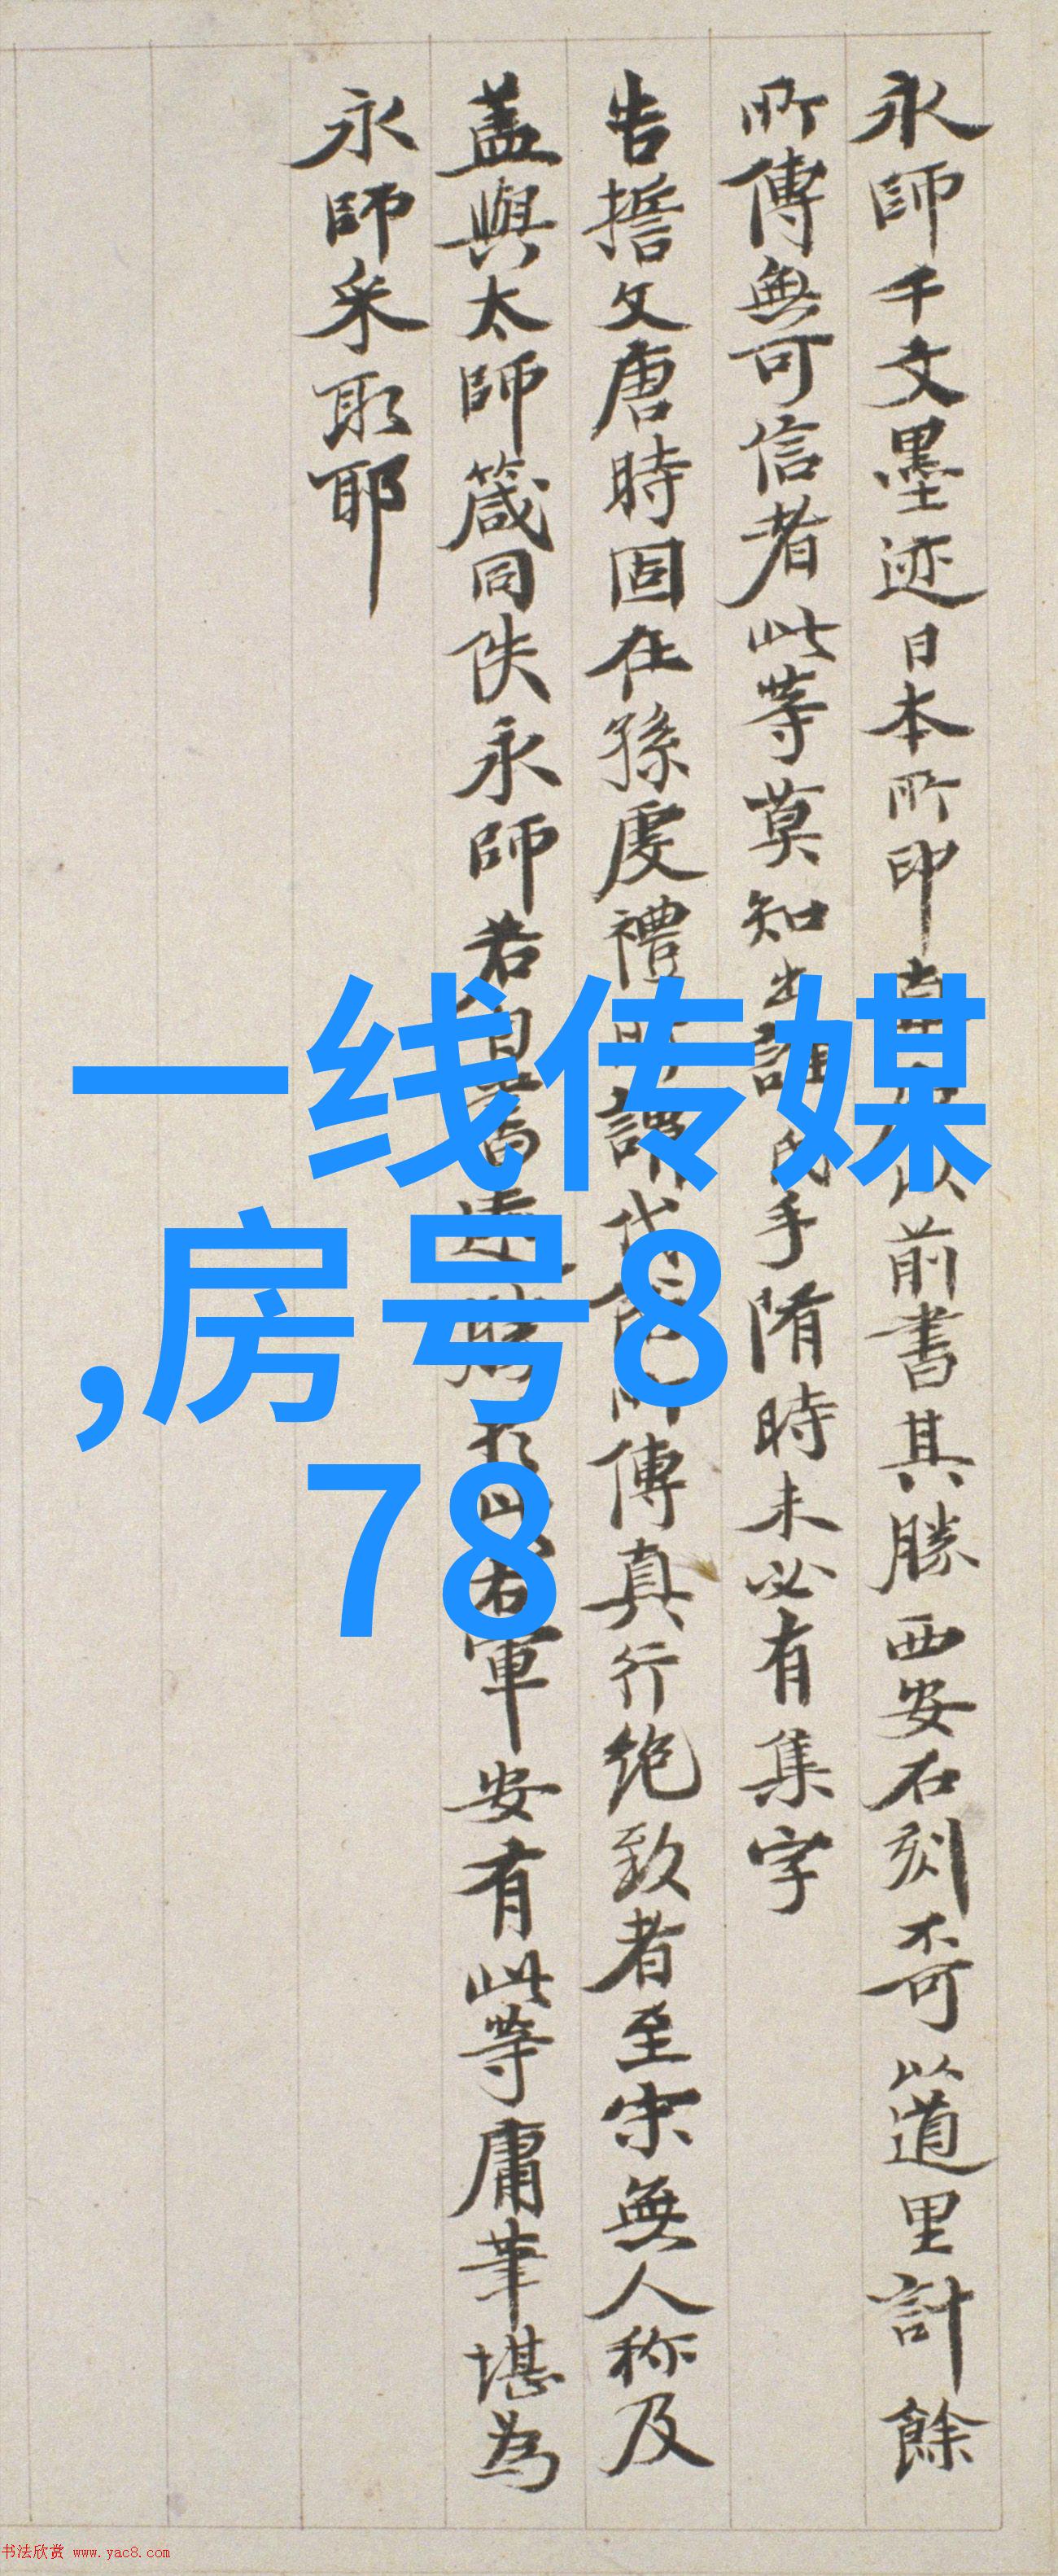 永師千文墨迹日本所印真以前書其勝西安石刻不可以道里計餘
所傳無可信者此等莫知出誰氏手隋時未必有集字
告擔文唐時固在孫虔禮所謂代傳真行绝致者至宋無人称及
盖與太師箴同佚永師若自書遠勝於此右軍安有此等庸筆堪為
永師采取耶
一线传媒
,房号8
78
书法欣赏 www.yac8.com